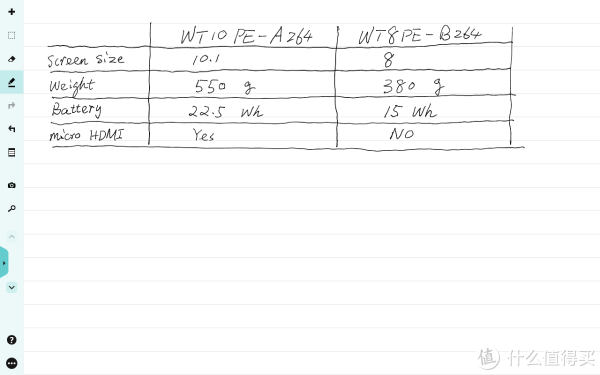 WT10PE-A264 WT8PE-B264
Screen size 10.1 8
Weight 550 g 380 g
Battery 22.5 Wh 15 Wh
micro HDMI Yes NO
值 什么值得买